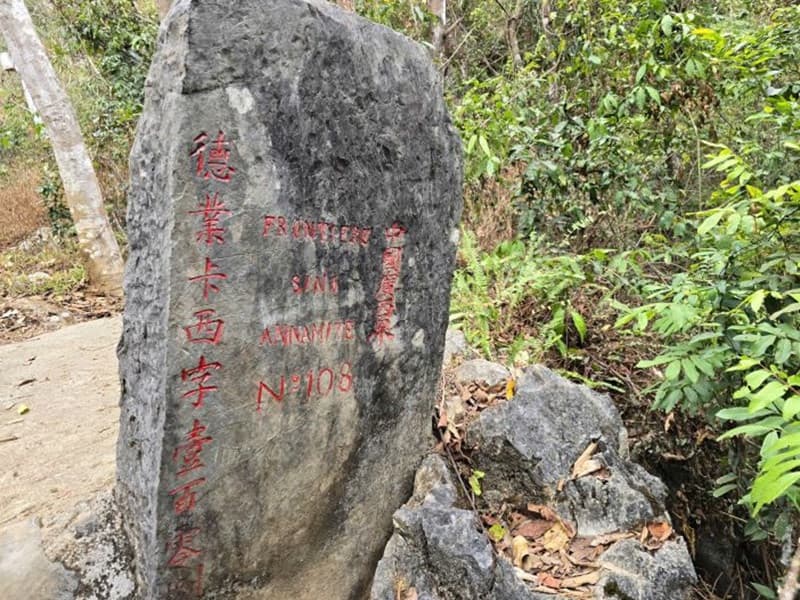 德業卡西字壹百零
FRONTIERE
SINO
ANNAMITE
Nº 108
中國廣西界